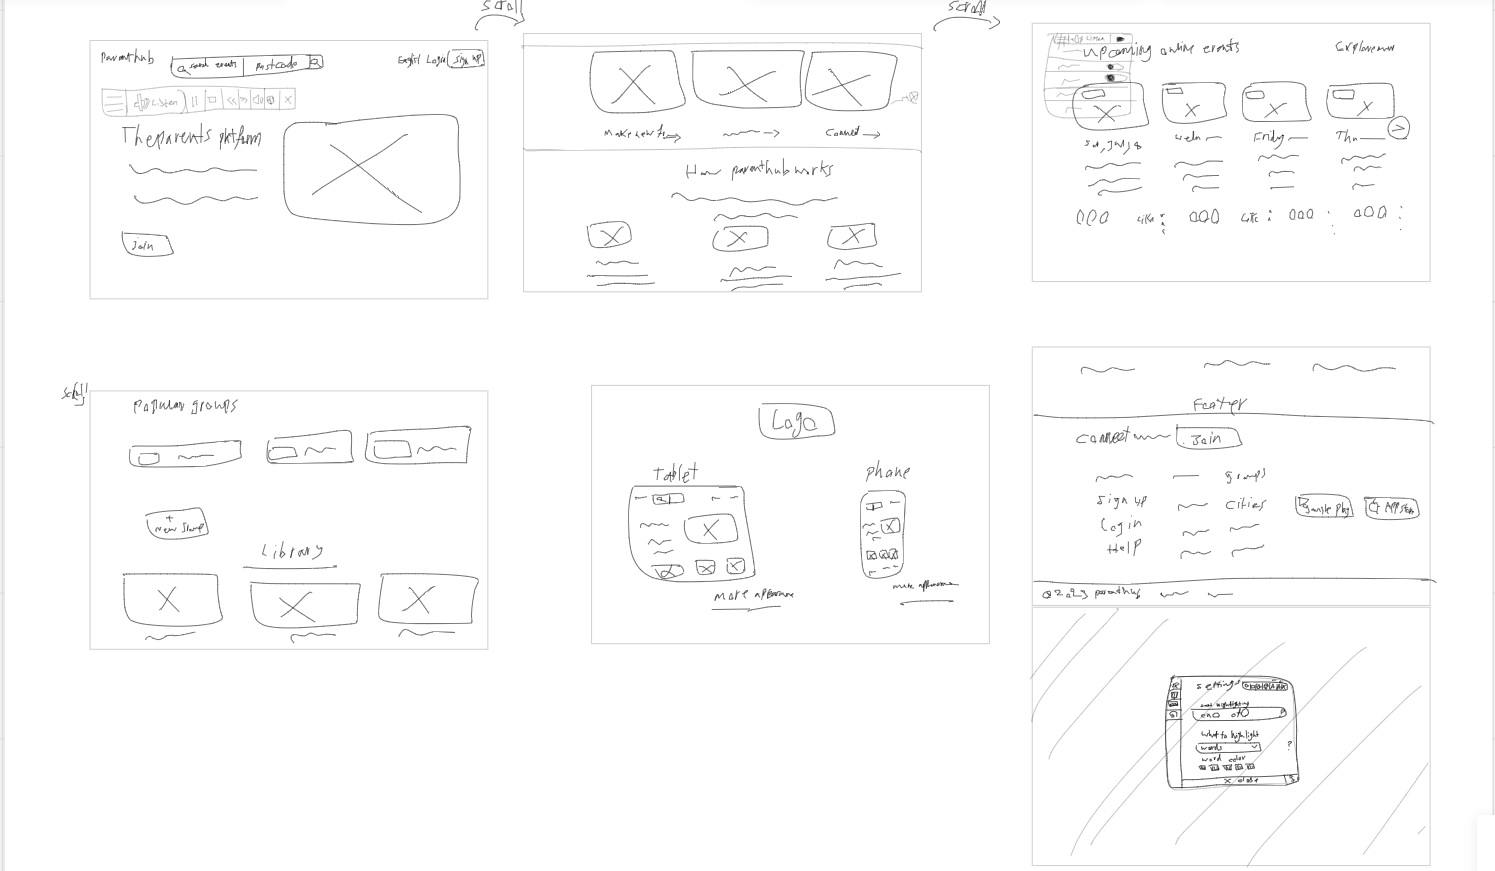 scroll
scroll
Parenthub
search events
Postcode
English Login Sign up
Listen
The parents platform
Join
Make new
Connect
How parenthub works
Listen
Upcoming online events
Explore more
Sat, July 8
Friday
Thu
Like
Like
scroll
Popular groups
+
New Group
Library
Logo
Tablet
Phone
more appearance
more appearance
Footer
Connect
Join
groups
Sign up
Cities
Login
Help
Google Play
App Store
© 2023 parenthub
settings
text highlighting
on off
What to highlight
words
?
word color
X close